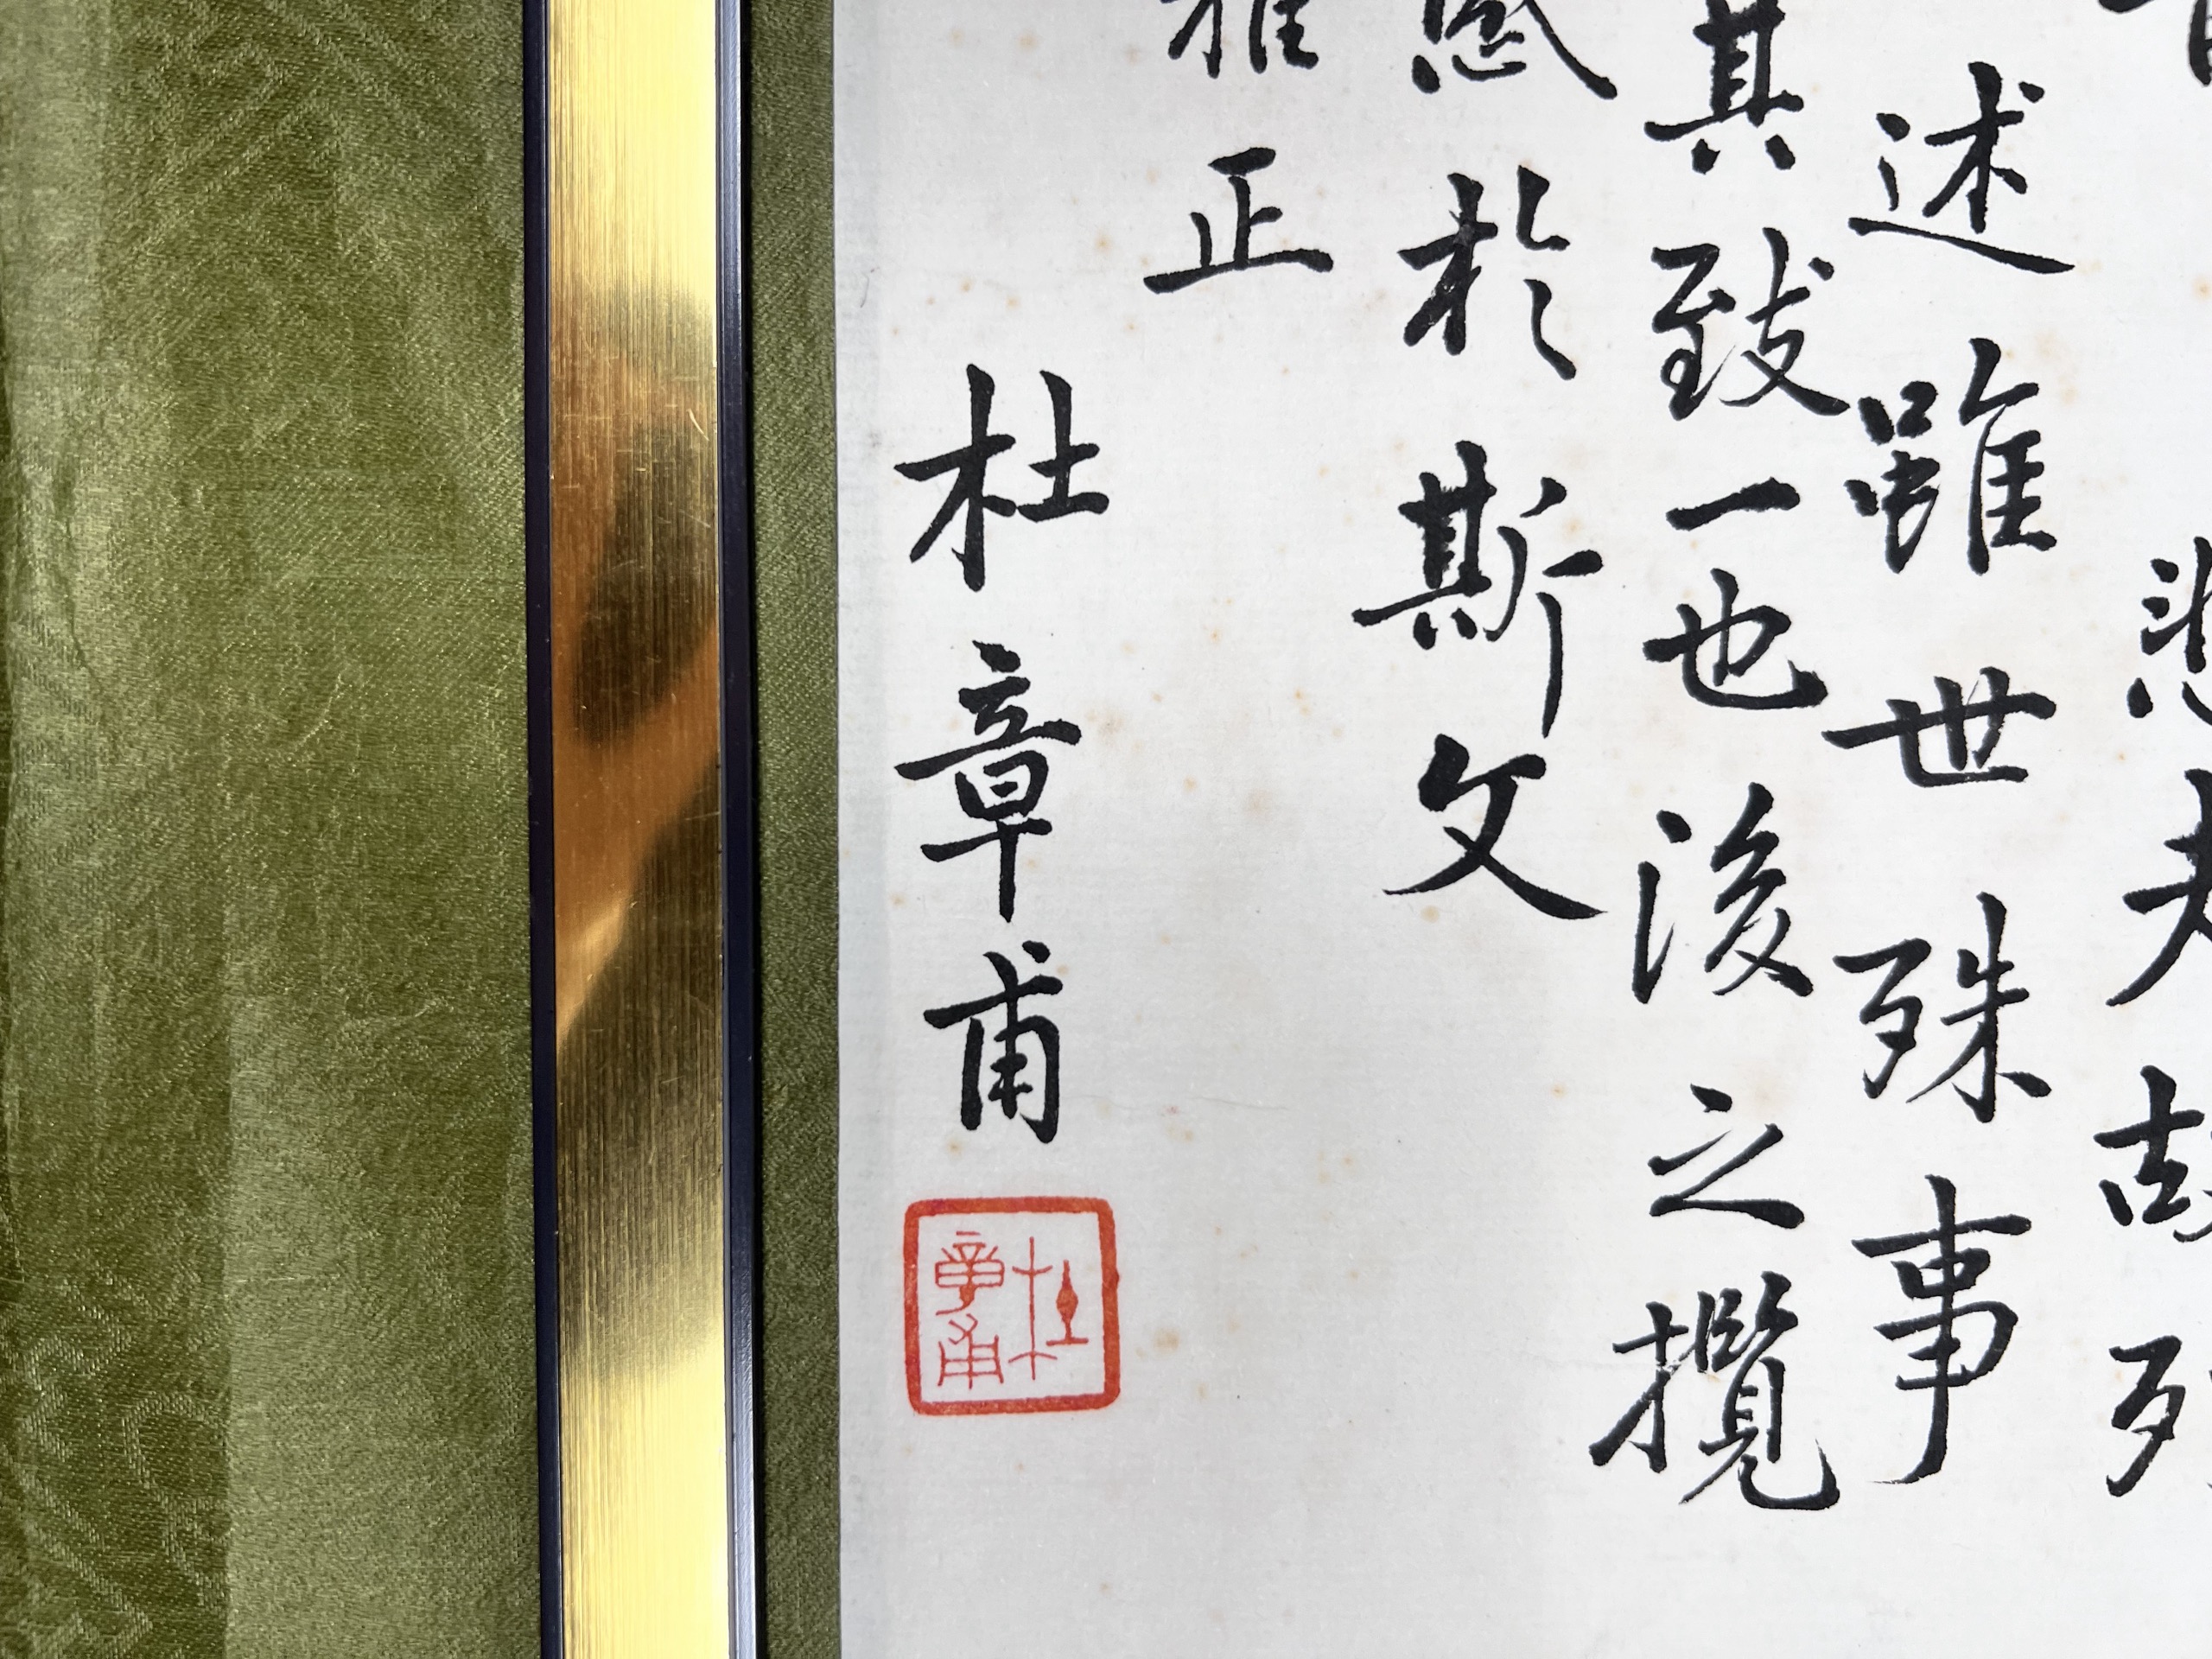 悲夫故列
述雖世殊事
其致一也後之攬
感於斯文
雅正
杜章甫
杜章甫